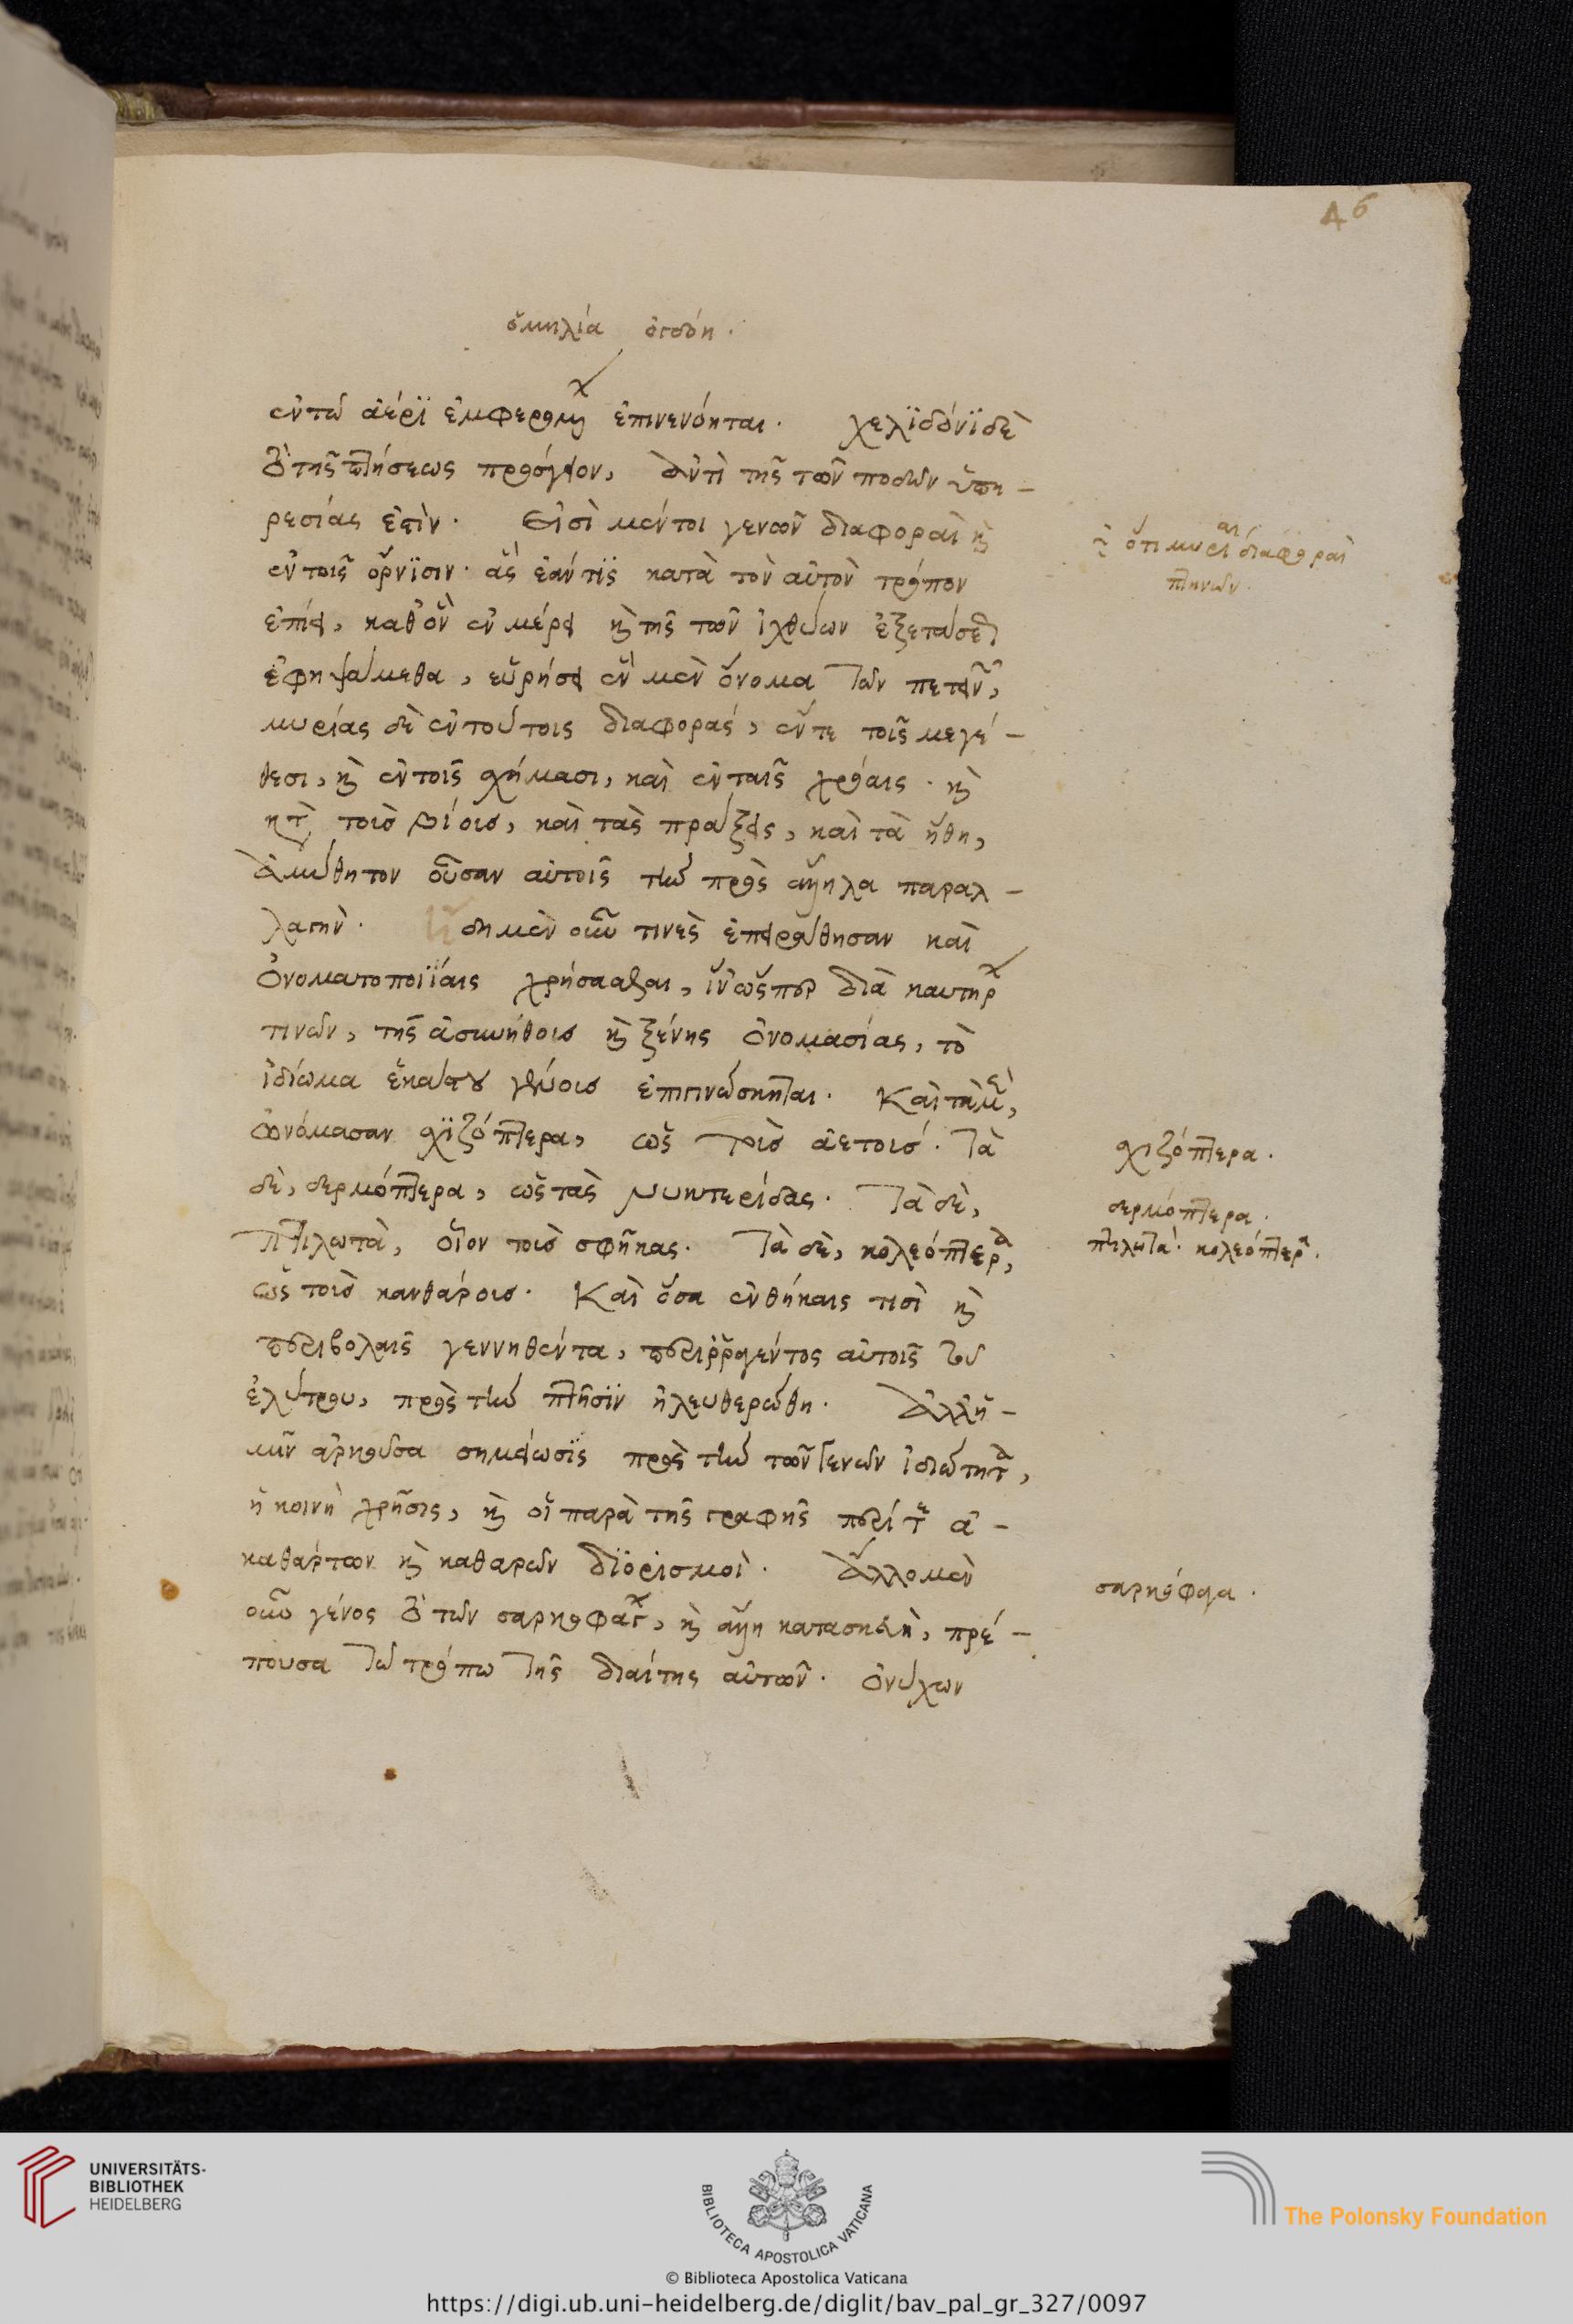 46
ὁμηλία ὀγδόη.
ἐν τῶ ἀέρϊ ἐμφερόμενα ἐπινενόηται. χελϊδόνϊ δὲ
τὸ τῆς πτήσεως πρόσγειον, ἀντὶ τῆς τῶν ποδῶν ὑπη-
ρεσίας ἐστὶν. Εἰσὶ μέντοι γενῶν διαφοραὶ καὶ
ἐν τοῖς ὄρνϊσιν. ἃς ἐάν τϊς κατὰ τὸν αὐτὸν τρόπον
ἐπίῃ, καθ' ὃν ἐν μέρει καὶ τῆς τῶν ἰχθύων ἐξετάσεως
ἐφηψάμεθα, εὑρήσει ἓν μὲν ὄνομα τῶν πετεινῶν,
μυρίας δὲ ἐν τούτοις διαφοράς, ἔν τε τοῖς μεγέ-
θεσι, καὶ ἐν τοῖς σχήμασι, καὶ ἐν ταῖς χρόαις. καὶ
κατὰ τοὺς βίους, καὶ τὰς πράξεις, καὶ τὰ ἤθη,
ἀμύθητον οὖσαν αὐτοῖς τὴν πρὸς ἄλληλα παραλ-
λαγὴν. ἤδη μὲν οὖν τινὲς ἐπειράθησαν καὶ
ὀνοματοποιΐαις χρήσασθαι, ἵν' ὥσπερ διὰ καυτήρων
τινῶν, τῆς ἀσυνήθους καὶ ξένης ὀνομασίας, τὸ
ἰδίωμα ἑκάστου γένους ἐπιγινώσκηται. Καὶ τὰ μὲν,
ὠνόμασαν σχϊζόπτερα, ὡς τοὺς ἀετούς. τὰ
δὲ, δερμόπτερα, ὡς τὰς νυκτερίδας. τὰ δὲ,
πτιλωτὰ, οἷον τοὺς σφῆκας. τὰ δὲ, κολεόπτερα,
ὡς τοὺς κανθάρους. Καὶ ὅσα ἐν θήκαις τισὶ καὶ
περιβολαῖς γεννηθέντα, περιρραγέντος αὐτοῖς τοῦ
ἐλύτρου, πρὸς τὴν πτῆσϊν ἠλευθερώθη. Ἀλλ' ἡ-
μῖν ἀρκοῦσα σημείωσϊς πρὸς τὴν τῶν γενῶν ἰδιότητα,
ἡ κοινὴ χρῆσις, καὶ οἱ παρὰ τῆς γραφῆς περὶ τῶν ἀ-
καθάρτων καὶ καθαρῶν διορισμοὶ. Ἄλλο μὲν
οὖν γένος τὸ τῶν σαρκοφάγων, καὶ ἄλλη κατασκευὴ, πρέ-
πουσα τῶ τρόπω τῆς διαίτης αὐτῶν. ὀνύχων
ὅτι μυρίαι διαφοραὶ
πτηνῶν.
σχιζόπτερα.
δερμόπτερα.
πτιλωτὰ. κολεόπτερα.
σαρκοφάγα.
UNIVERSITÄTS-
BIBLIOTHEK
HEIDELBERG
BIBLIOTECA APOSTOLICA VATICANA
The Polonsky Foundation
© Biblioteca Apostolica Vaticana
https://digi.ub.uni-heidelberg.de/diglit/bav_pal_gr_327/0097